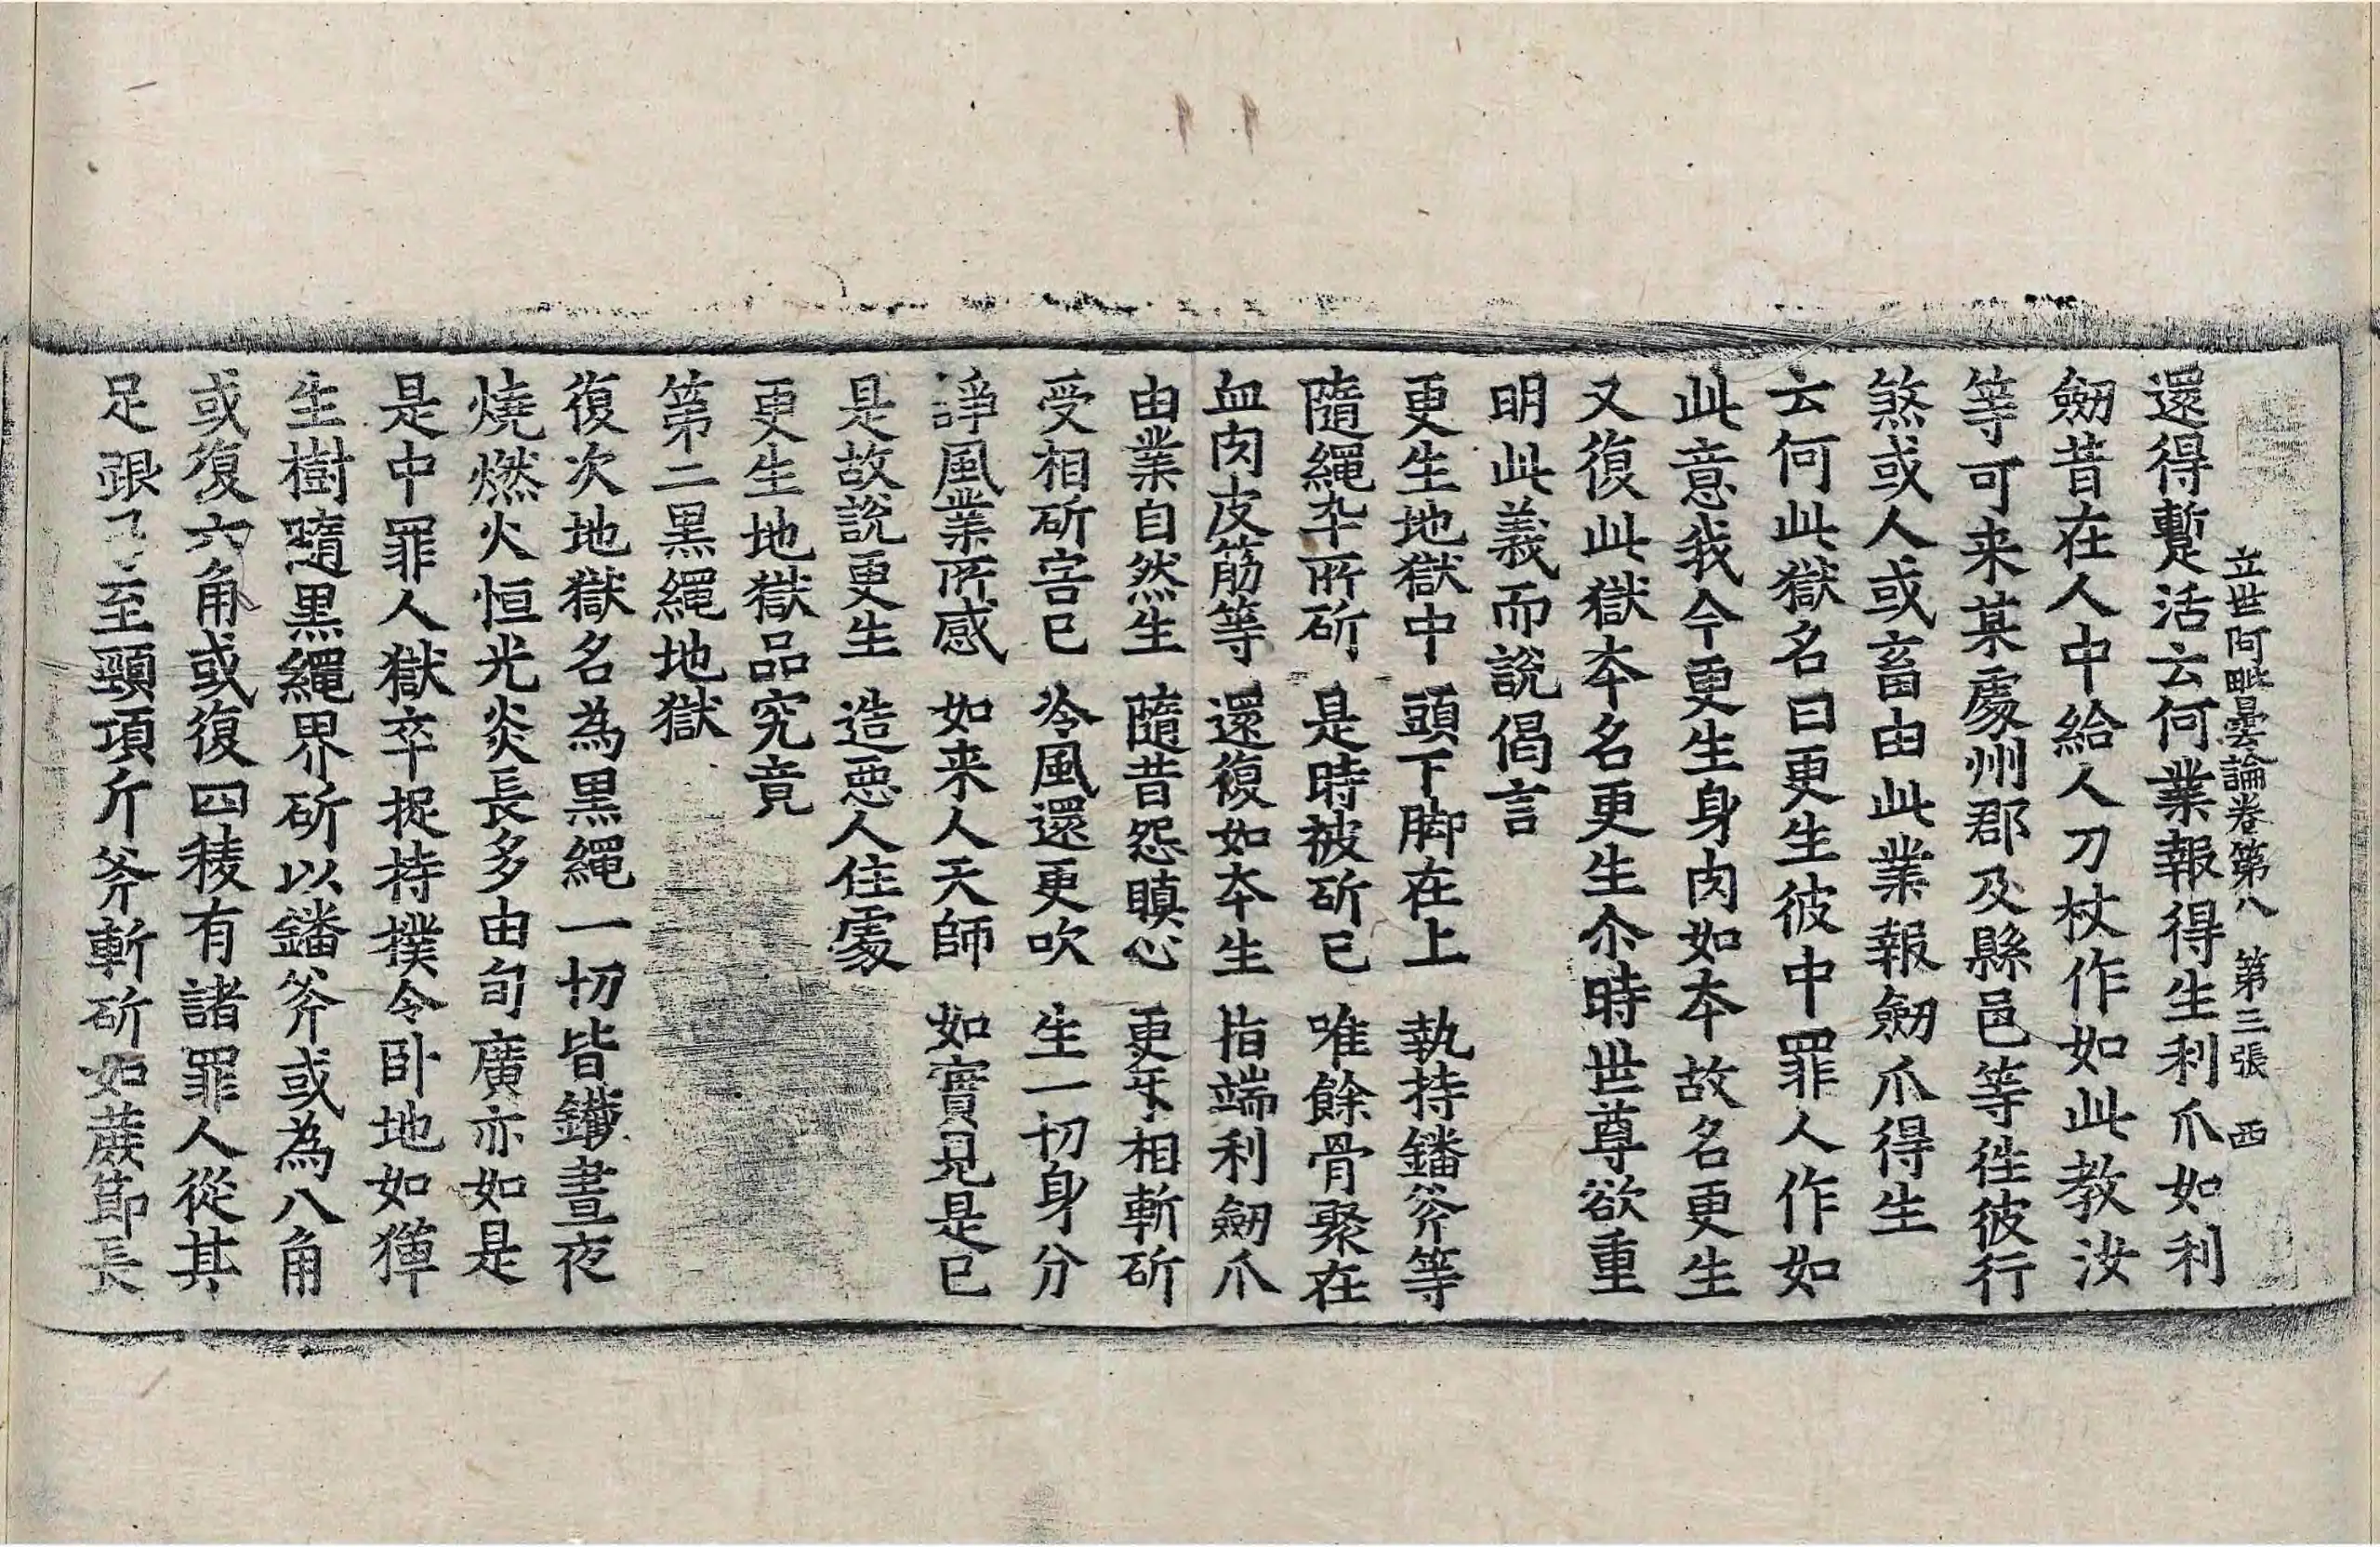 立世阿毗曇論卷第八 第三張 西
還得蹔活云何業報得生利爪如利
劒昔在人中給人刀杖作如此教汝
等可来某處州郡及縣邑等徃彼行
煞或人或畜由此業報劒爪得生
云何此獄名曰更生彼中罪人作如
此意我今更生身肉如本故名更生
又復此獄本名更生尒時世尊欲重
明此義而說偈言
更生地獄中 頭下脚在上 執持鐇斧等
隨繩卒所斫 是時被斫已 唯餘骨聚在
血肉皮筋等 還復如本生 指端利劒爪
由業自然生 隨昔怨瞋心 更牙相斬斫
受相斫害已 冷風還更吹 生一切身分
諍風業所感 如来人天師 如實見是已
是故說更生 造惡人住處
更生地獄品究竟
第二黑繩地獄
復次地獄名為黑繩一切皆鐵晝夜
燒燃火恒光炎長多由旬廣亦如是
是中罪人獄卒捉持撲令卧地如獐
生樹隨黑繩界斫以鐇斧或為八角
或復六角或復四稜有諸罪人從其
足跟至頸項斤斧斬斫如蔗節長